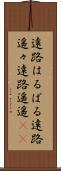 遠路はるばる遠路
遥々遠路遥遥